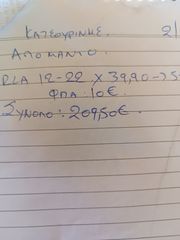 ΚΑΤΣΟΥΡΙΝΗΣ. 2
ΑΠΟΜΑΝΤΟ
RLA 12-22 X 39,90-25
ΦΠΑ: 10€
ΣΥΝΟΛΟ: 209,50€